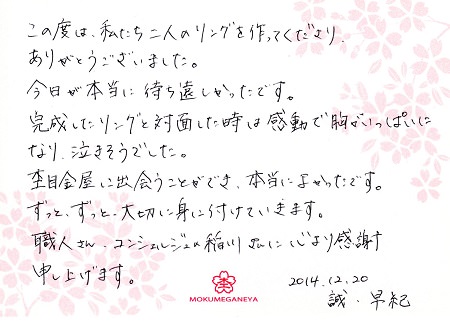 この度は、私たち二人のリングを作ってくださり、
ありがとうございました。
今日が本当に待ち遠しかったです。
完成したリングと対面した時は感動で胸がいっぱいに
なり、泣きそうでした。
杢目金屋に出会うことができ、本当によかったです。
ずっと、ずっと、大切に身に付けていきます。
職人さん、コンシェルジュの稲川さんに心より感謝
申し上げます。
MOKUMEGANEYA
2014.12.20
誠・早紀